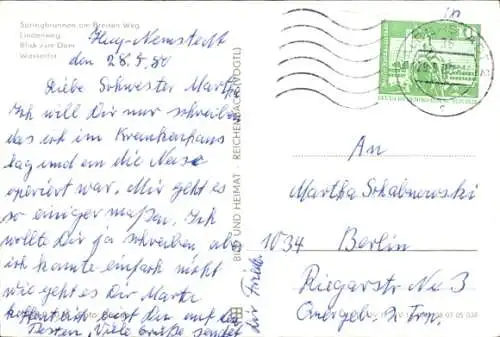 Springbrunnen am Breiten Weg
Lindenweg
Blick zum Dom
Wasserter
Huy-Nemstedt
den 28.9.80
Liebe Schwester Martha
Ich will Dir nur schreiben
das ich im Krankenhaus
lag und an die Nase
operiert war. Mir geht es
so einiger maßen. Ich
wollte Dir ja schreiben ab
ich kannte einfach nicht
wie geht es Dir Martha
hoffentlich bist du auf de
Posten, Viele Grüße sendet
dir Frieda
BILD UND HEIMAT REICHENBACH (VOGTL)
An
Martha Schabnowski
1034 Berlin
Rigarstr Nr 3
Quergeb. 2 Trp.